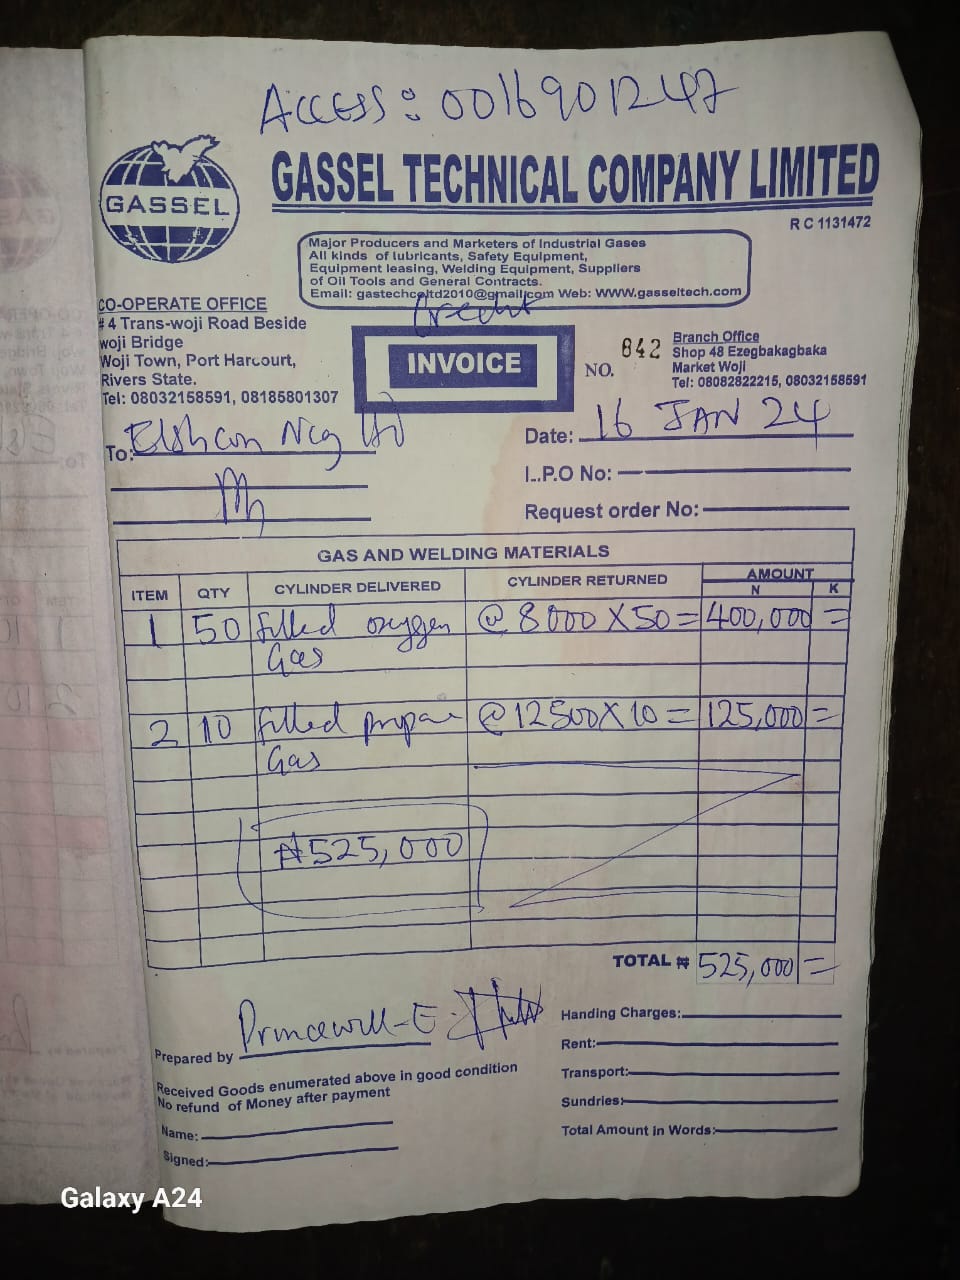 Access: 0016901247
GASSEL
GASSEL TECHNICAL COMPANY LIMITED
RC 1131472
Major Producers and Marketers of Industrial Gases
All kinds of lubricants, Safety Equipment,
Equipment leasing, Welding Equipment, Suppliers
of Oil Tools and General Contracts.
Email: gastechcoltd2010@gmail.com Web: WWW.gasseltech.com
CO-OPERATE OFFICE
# 4 Trans-woji Road Beside
woji Bridge
Woji Town, Port Harcourt,
Rivers State.
Tel: 08032158591, 08185801307
Credit
INVOICE
NO. 842
Branch Office
Shop 48 Ezegbakagbaka
Market Woji
Tel: 08082822215, 08032158591
To: Elshcon Nig Ltd
Date: 16 JAN 24
I..P.O No:
Request order No:
GAS AND WELDING MATERIALS
ITEM QTY CYLINDER DELIVERED CYLINDER RETURNED AMOUNT
N K
1 50 filled oxygen @ 8000 X 50 = 400,000 =
Gas
2 10 filled propane @ 12500 X 10 = 125,000 =
Gas
₦525,000
TOTAL ₦ 525,000 =
Prepared by Princewill-E
Received Goods enumerated above in good condition
No refund of Money after payment
Name:
Signed:
Handing Charges:
Rent:
Transport:
Sundries:
Total Amount in Words:
Galaxy A24